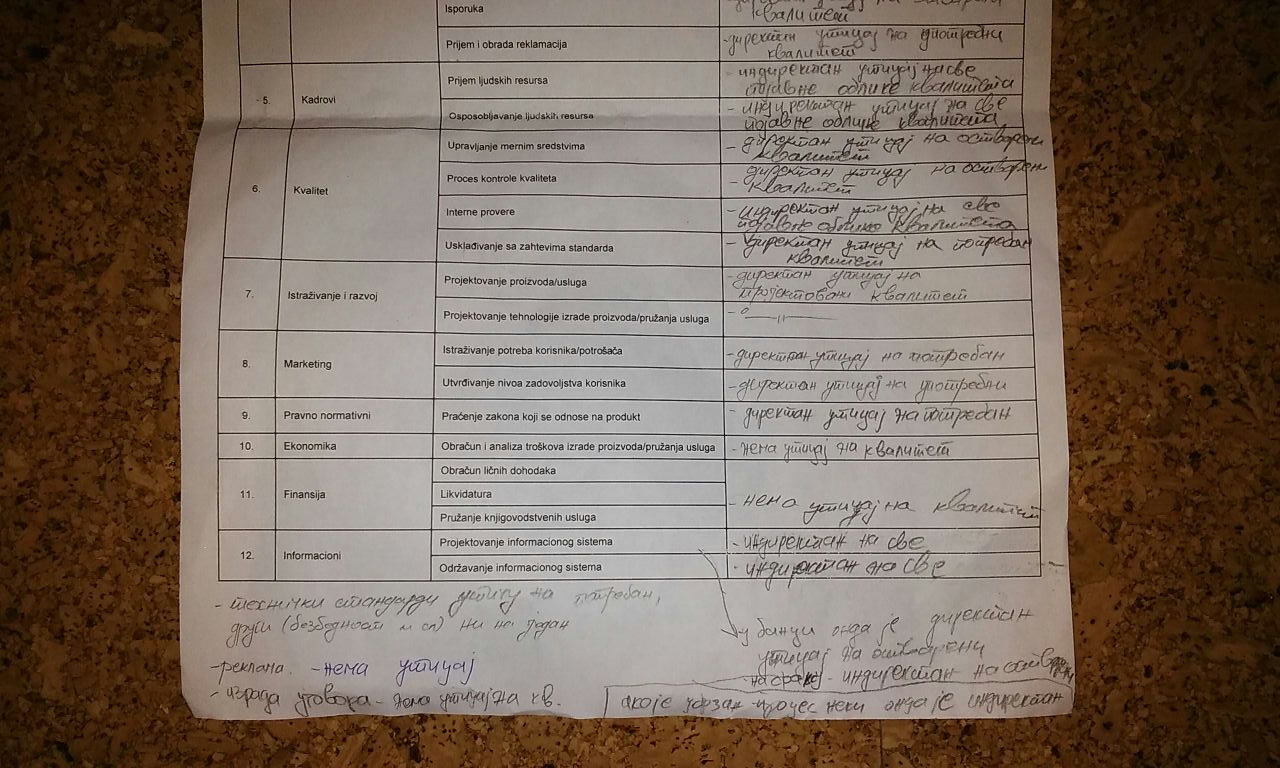 Isporuka
квалитет
Prijem i obrada reklamacija
-директан утицај на употребни
квалитет
5.
Kadrovi
Prijem ljudskih resursa
- индиректан утицај на све
појавне облике квалитета
Osposobljavanje ljudskih resursa
- индиректан утицај на све
појавне облике квалитета
6.
Kvalitet
Upravljanje mernim sredstvima
- директан утицај на остварени
квалитет
Proces kontrole kvaliteta
- директан утицај на остварени
квалитет
Interne provere
- индиректан утицај на све
појавне облике квалитета
Usklađivanje sa zahtevima standarda
- директан утицај на потребан
квалитет
7.
Istraživanje i razvoj
Projektovanje proizvoda/usluga
- директан утицај на
пројектовани квалитет
Projektovanje tehnologije izrade proizvoda/pružanja usluga
- —— ıı ——
8.
Marketing
Istraživanje potreba korisnika/potrošača
-директан утицај на потребан
Utvrđivanje nivoa zadovoljstva korisnika
-директан утицај на употребни
9.
Pravno normativni
Praćenje zakona koji se odnose na produkt
- директан утицај на потребан
10.
Ekonomika
Obračun i analiza troškova izrade proizvoda/pružanja usluga
- нема утицај на квалитет
11.
Finansija
Obračun ličnih dohodaka
Likvidatura
Pružanje knjigovodstvenih usluga
- нема утицај на квалитет
12.
Informacioni
Projektovanje informacionog sistema
- индиректан на све
Održavanje informacionog sistema
- индиректан на све
- технички стандарди утичу на потребан,
други (безбедност и сл) ни на један
у банци онда је директан
утицај на остварени
- индиректан на
-реклама - нема утицај
- израда уговора - нема утицај на кв.
ако је процес неки онда је индиректан